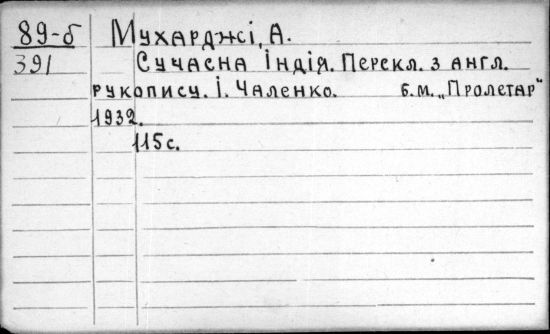 89-б Мухарджі, А.
391 Сучасна Індія. Перекл. з англ.
рукопису. І. Чаленко. б.м. „Пролетар"
1932.
115 с.